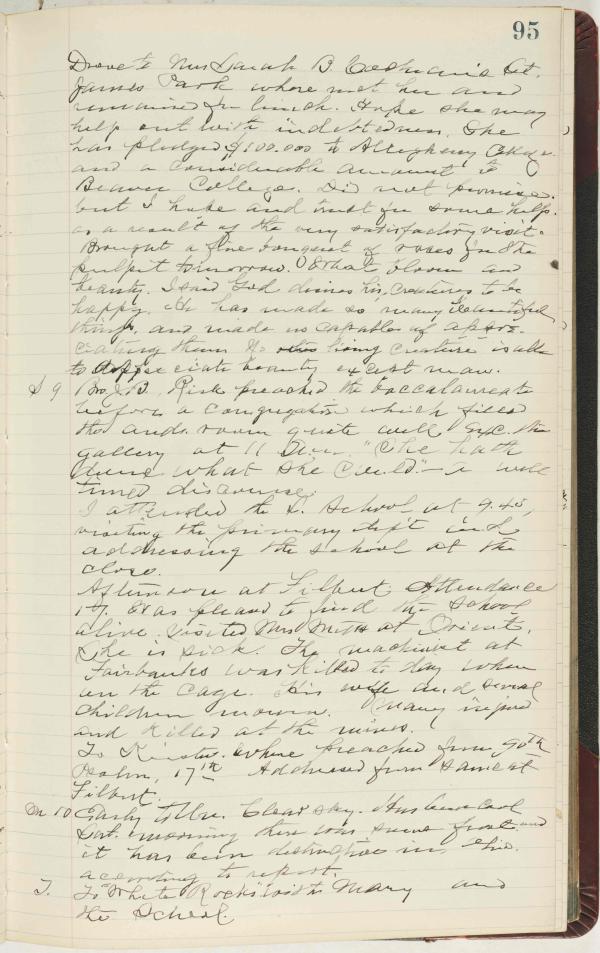 95
Drove to Mrs Sarah B. Cochran's St.
James Park where met her and
remained for lunch. Hope she may
help out with indebtedness. She
has pledged $100.000 to Allegheny College
and a considerable amount to
Beaver College. Did not promise.
but I hope and trust for some help.
as a result of the very satisfactory visit.
Brought a fine bouquet of roses for the
pulpit tomorrow. What bloom and
beauty. I said God desires his creatures to be
happy. He has made so many beautiful
things, and made us capable of appre-
ciating them. No living creature is able
to appreciate beauty except man.
S 9 Bro. J. B. Risk preached the baccalaureate
before a congregation which filled
the aud. room quite well exc. the
gallery at 11 a.m. "She hath
done what she could" – a well
timed discourse.
I attended the S. School at 9.45,
visiting the primary dep't and
addressing the school at the
close.
Afternoon at Filbert. Attendance
17. Was pleased to find the school
alive. Visited Mrs at Orient.
She is sick. The machinist at
Fairbanks was killed to day when
on the cage. His wife and several
children mourn. Many injured
and killed at the mines.
To where preached from 90th
Psalm, 17th Addressed from same at
Filbert.
M 10 Early to Un. Clear day. Has been cool
Sat. morning there was some frost and
it has been destructive in Ohio.
according to report.
T. To "White Rocks" with Mary and
the School.